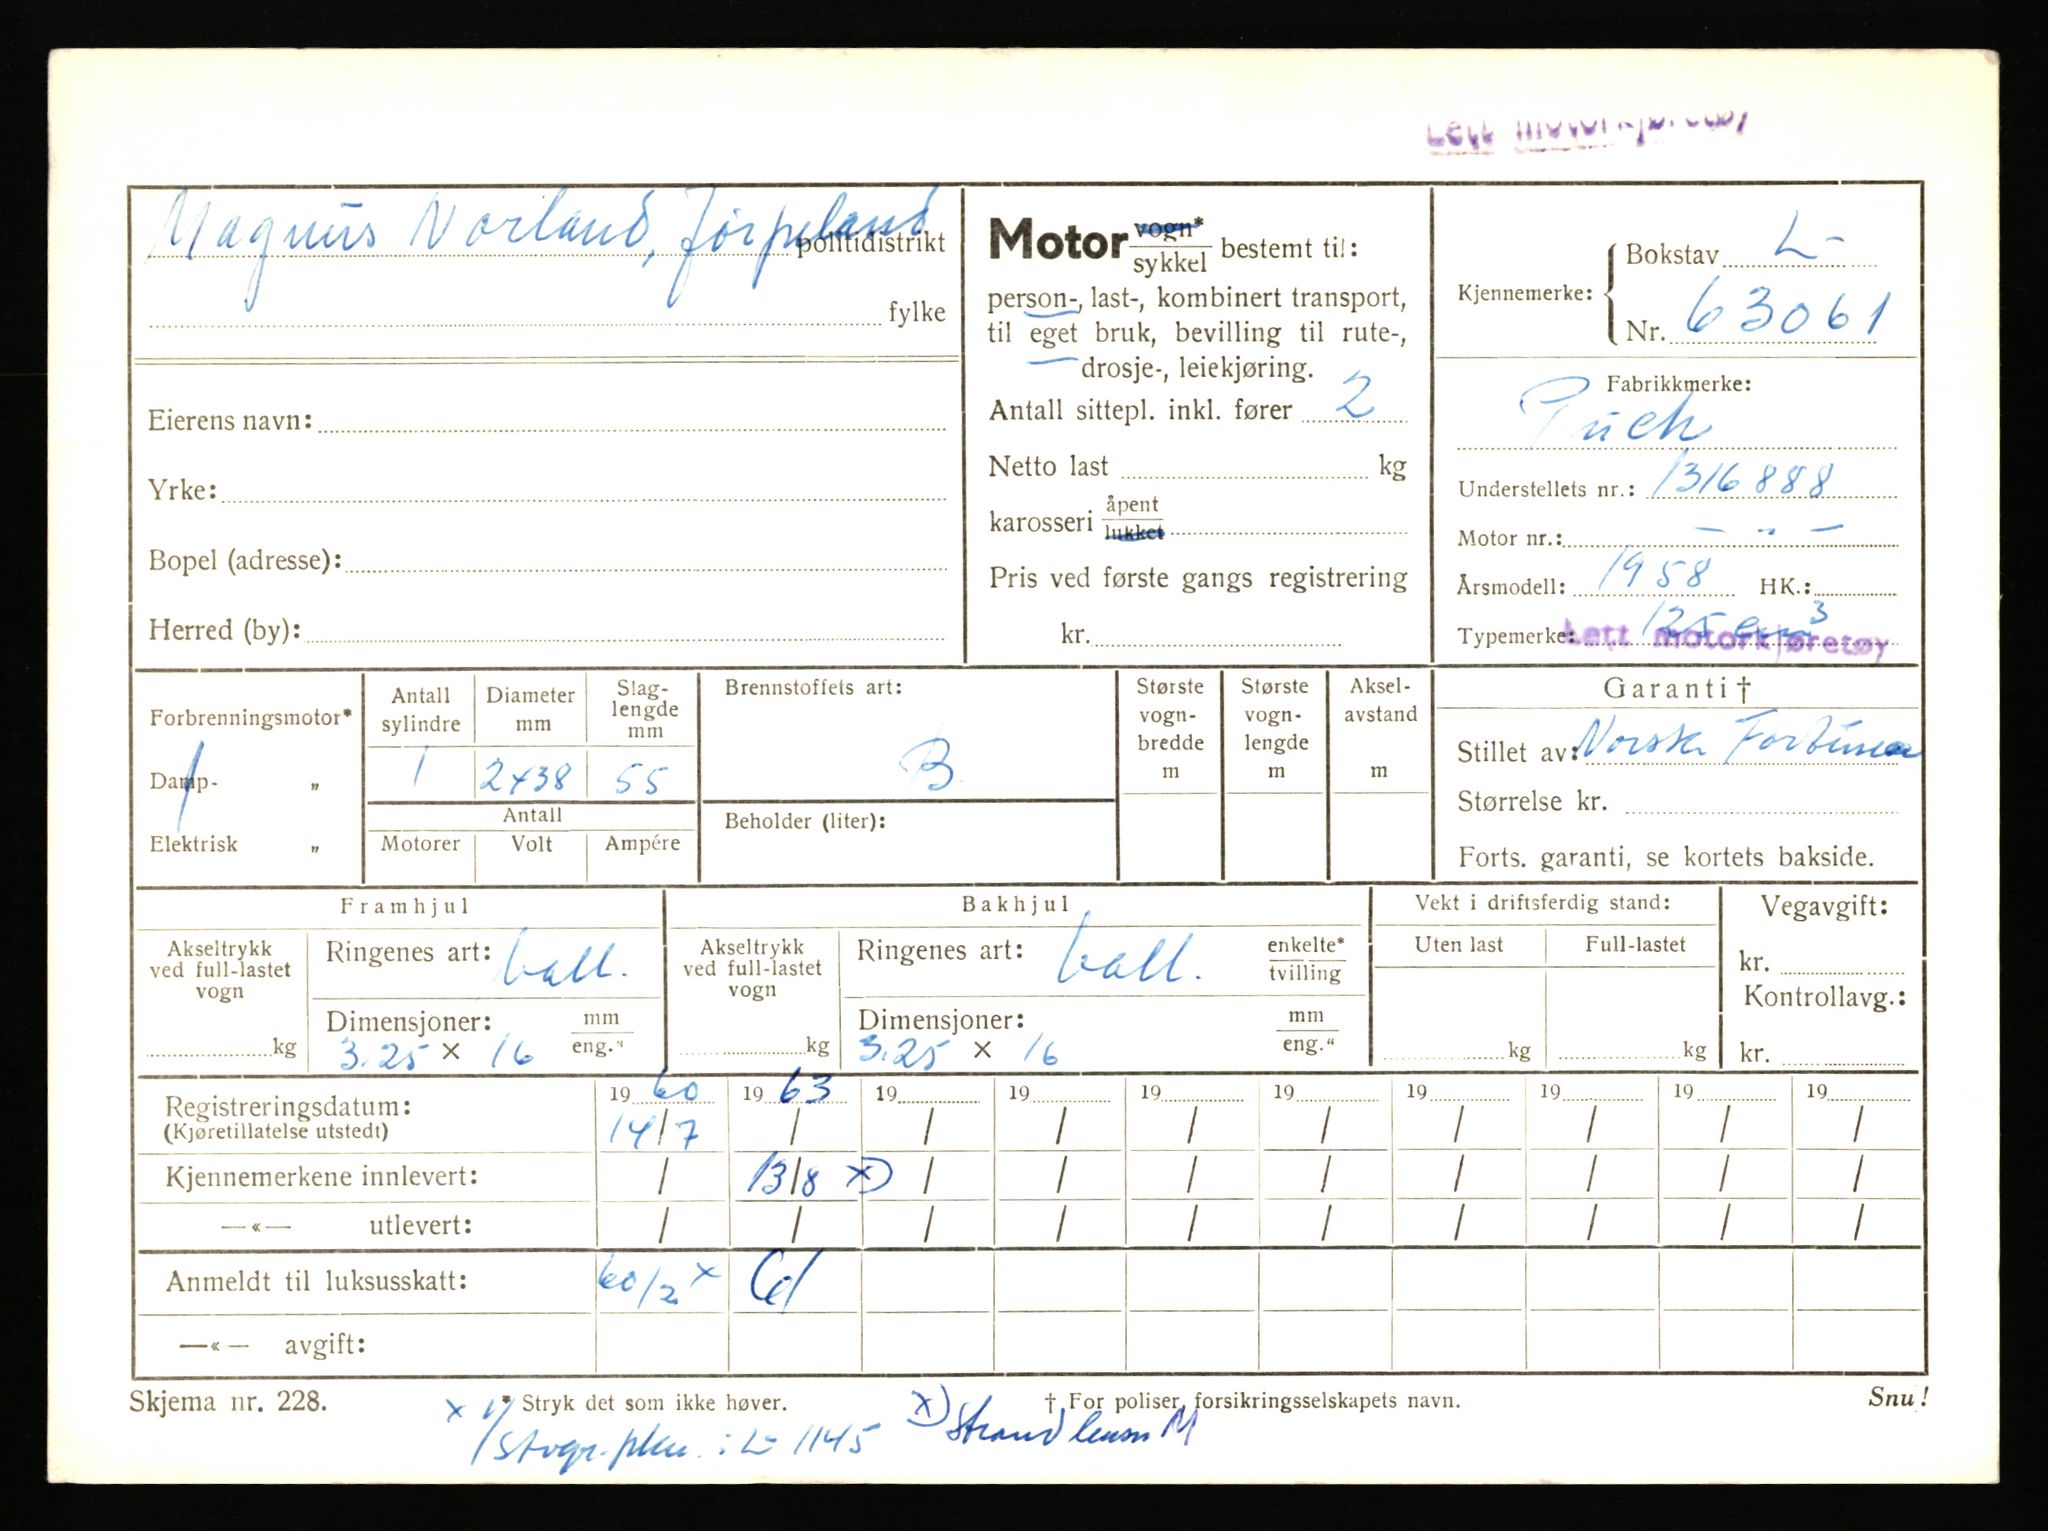 Lett motorkjøretøy
Magnus Norland, Jørpeland politidistrikt
fylke
Eierens navn:
Yrke:
Bopel (adresse):
Herred (by):
Motor vogn* sykkel bestemt til:
person-, last-, kombinert transport,
til eget bruk, bevilling til rute-,
drosje-, leiekjøring.
Antall sittepl. inkl. fører 2
Netto last kg
karosseri åpent lukket
Pris ved første gangs registrering
kr.
Kjennemerke: Bokstav L-
Nr. 63061
Fabrikkmerke:
Puch
Understellets nr.: 1316888
Motor nr.: — „ —
Årsmodell: 1958 HK.:
Typemerke: 125 cm3
Lett motorkjøretøy
Forbrenningsmotor*
Damp- „
Elektrisk „
Antall sylindre 1
Diameter mm 2x38
Slaglengde mm 55
Antall
Motorer Volt Ampére
Brennstoffets art:
B
Beholder (liter):
Største vogn-bredde m
Største vogn-lengde m
Aksel-avstand m
Garanti †
Stillet av: Norske Fortuna
Størrelse kr.
Forts. garanti, se kortets bakside.
Framhjul
Akseltrykk ved full-lastet vogn kg
Ringenes art: ball.
Dimensjoner: mm eng."
3.25 × 16
Bakhjul
Akseltrykk ved full-lastet vogn kg
Ringenes art: ball. enkelte* tvilling
Dimensjoner: mm eng."
3.25 × 16
Vekt i driftsferdig stand:
Uten last Full-lastet
kg kg
Vegavgift:
kr.
Kontrollavg.:
kr.
19 60 19 63 19 19 19 19 19 19 19 19
Registreringsdatum: 14/7 / / / / / / / / /
(Kjøretillatelse utstedt)
Kjennemerkene innlevert: / 13/8 x) / / / / / / / /
—«— utlevert: / / / / / / / / / /
Anmeldt til luksusskatt: 60/2 x
—«— avgift:
Skjema nr. 228. * Stryk det som ikke høver. † For poliser, forsikringsselskapets navn. Snu!
x : L- 1145
x) Strand lensm